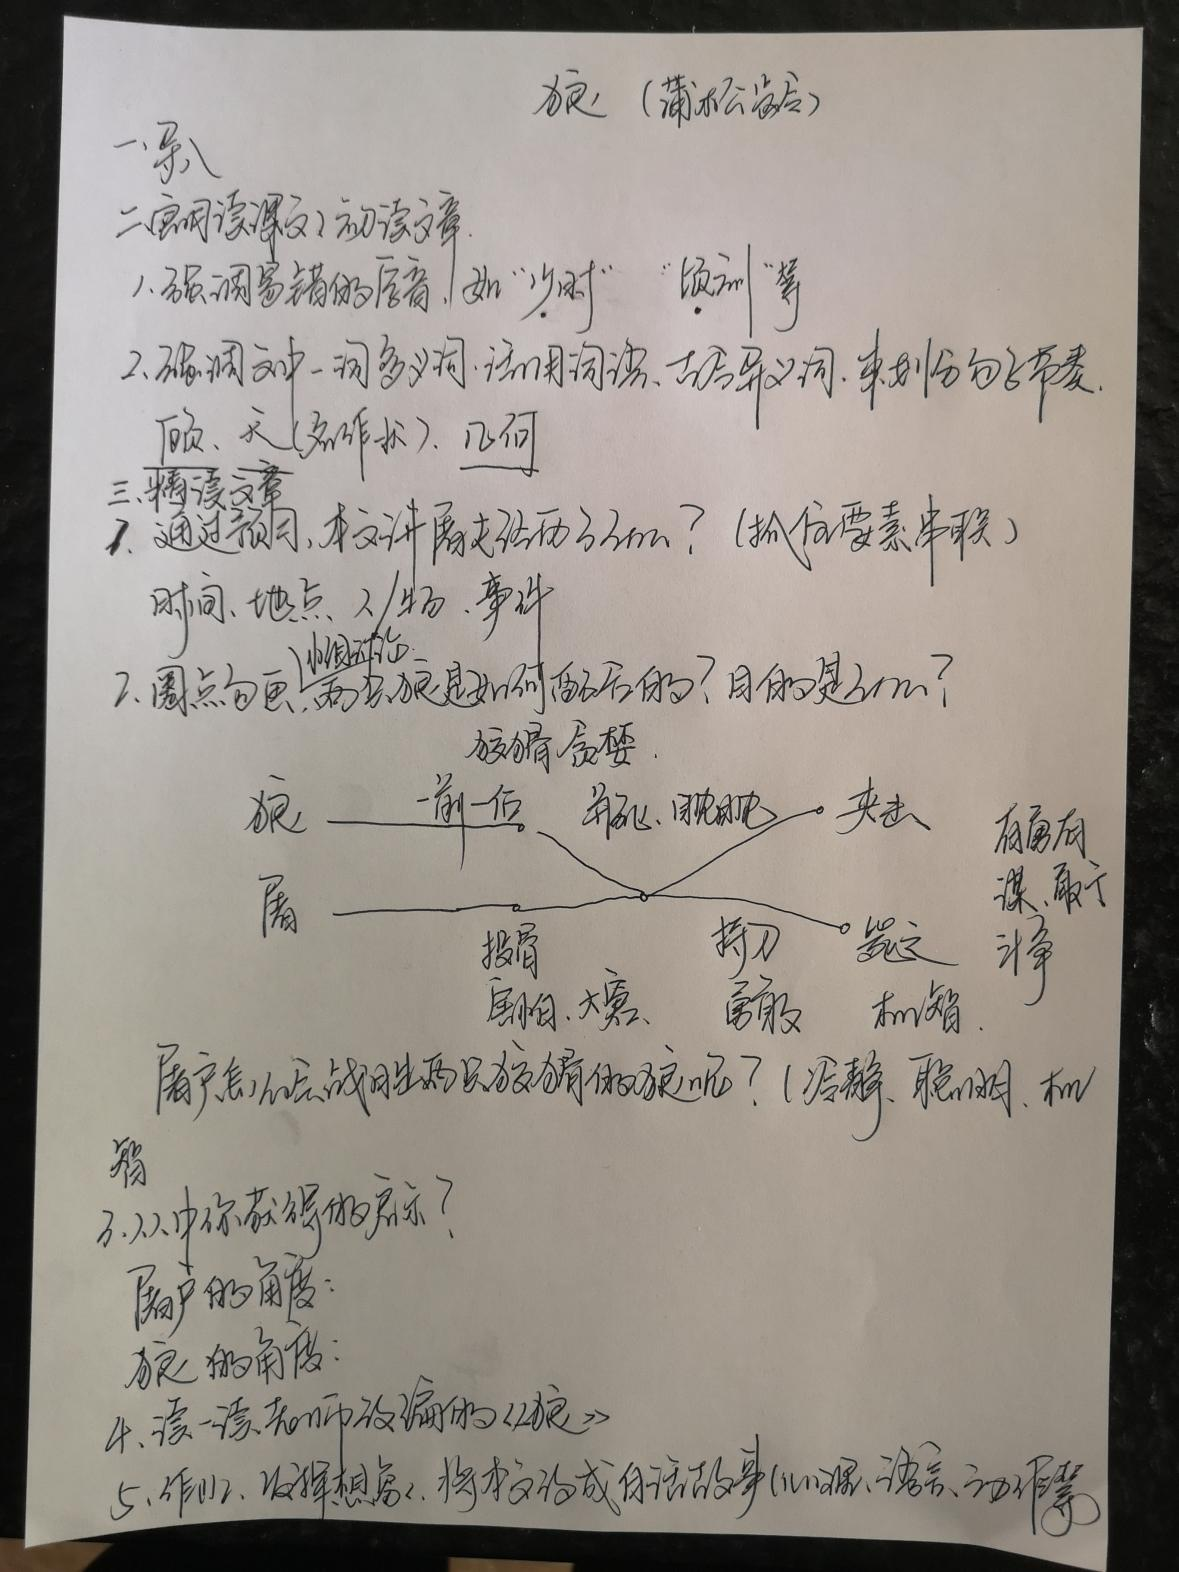 狼 (蒲松龄)
一、导入
二、字词读课文、初读文章.
1.强调易错的字音,如“少时” “顷刻”等
2.强调文中一词多义词.活用词语、古今异义词.来划分句子节奏.
顾、犬(名作状)、几何
三、精读文章
1.通过预习,本文讲屠夫经历了什么?(抓住要素串联)
时间、地点、人/物、事件
小组讨论.
2.圈点勾画,两只狼是如何配合的?目的是什么?
狡猾 贪婪.
狼 一前一后 并驱、眈眈 夹击
屠
有勇有谋、敢于斗争
投骨 持刀
勇敢 机智.
屠户怎么会战胜两只狡猾的狼呢?(冷静、聪明、机
智
3.从中你获得的启示?
屠户的角度:
狼的角度:
4.读一读老师改编的《狼》
5.作业.发挥想象.将本文改成白话故事(心理、语言、动作等)